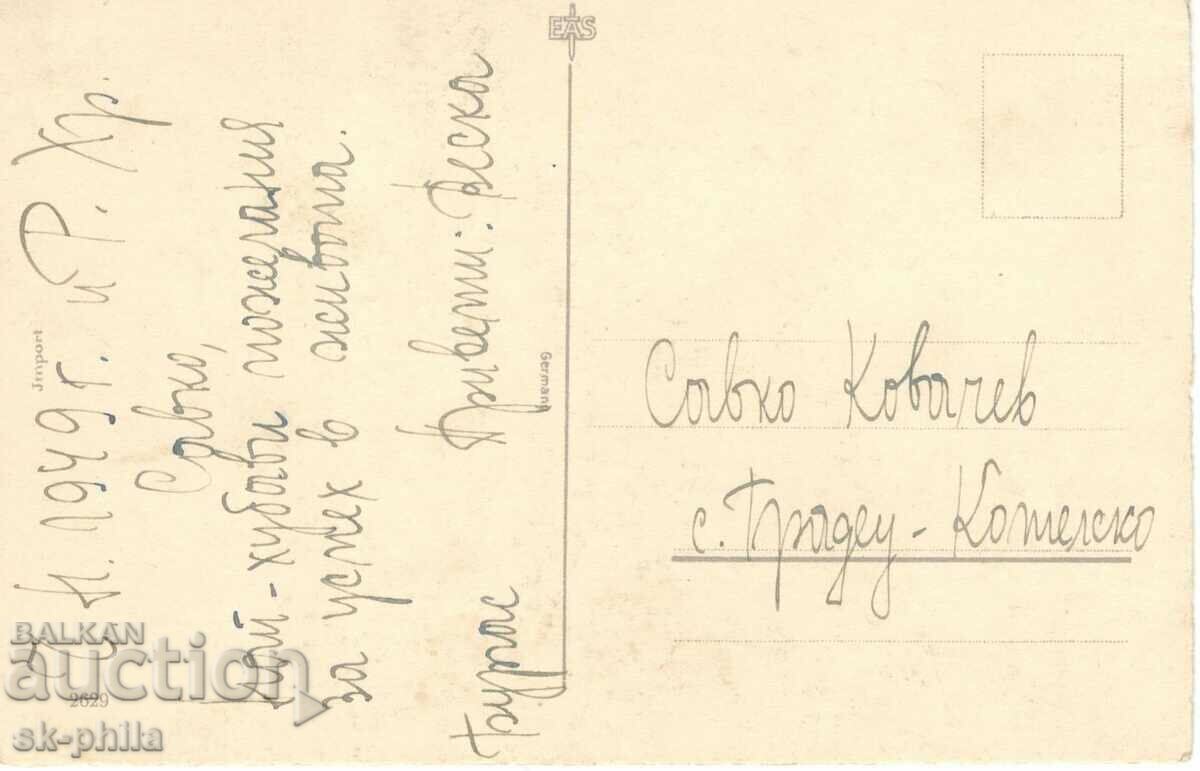 Ч. Н. 1949 г. и Р. Хр.
Савко,
Най-хубави пожелания
за успех в живота.
Бургас Привети: Веска
EAS
Import
Germany
2629
Савко Ковачев
с. Градец - Котелско
BALKAN
auction
sk-phila